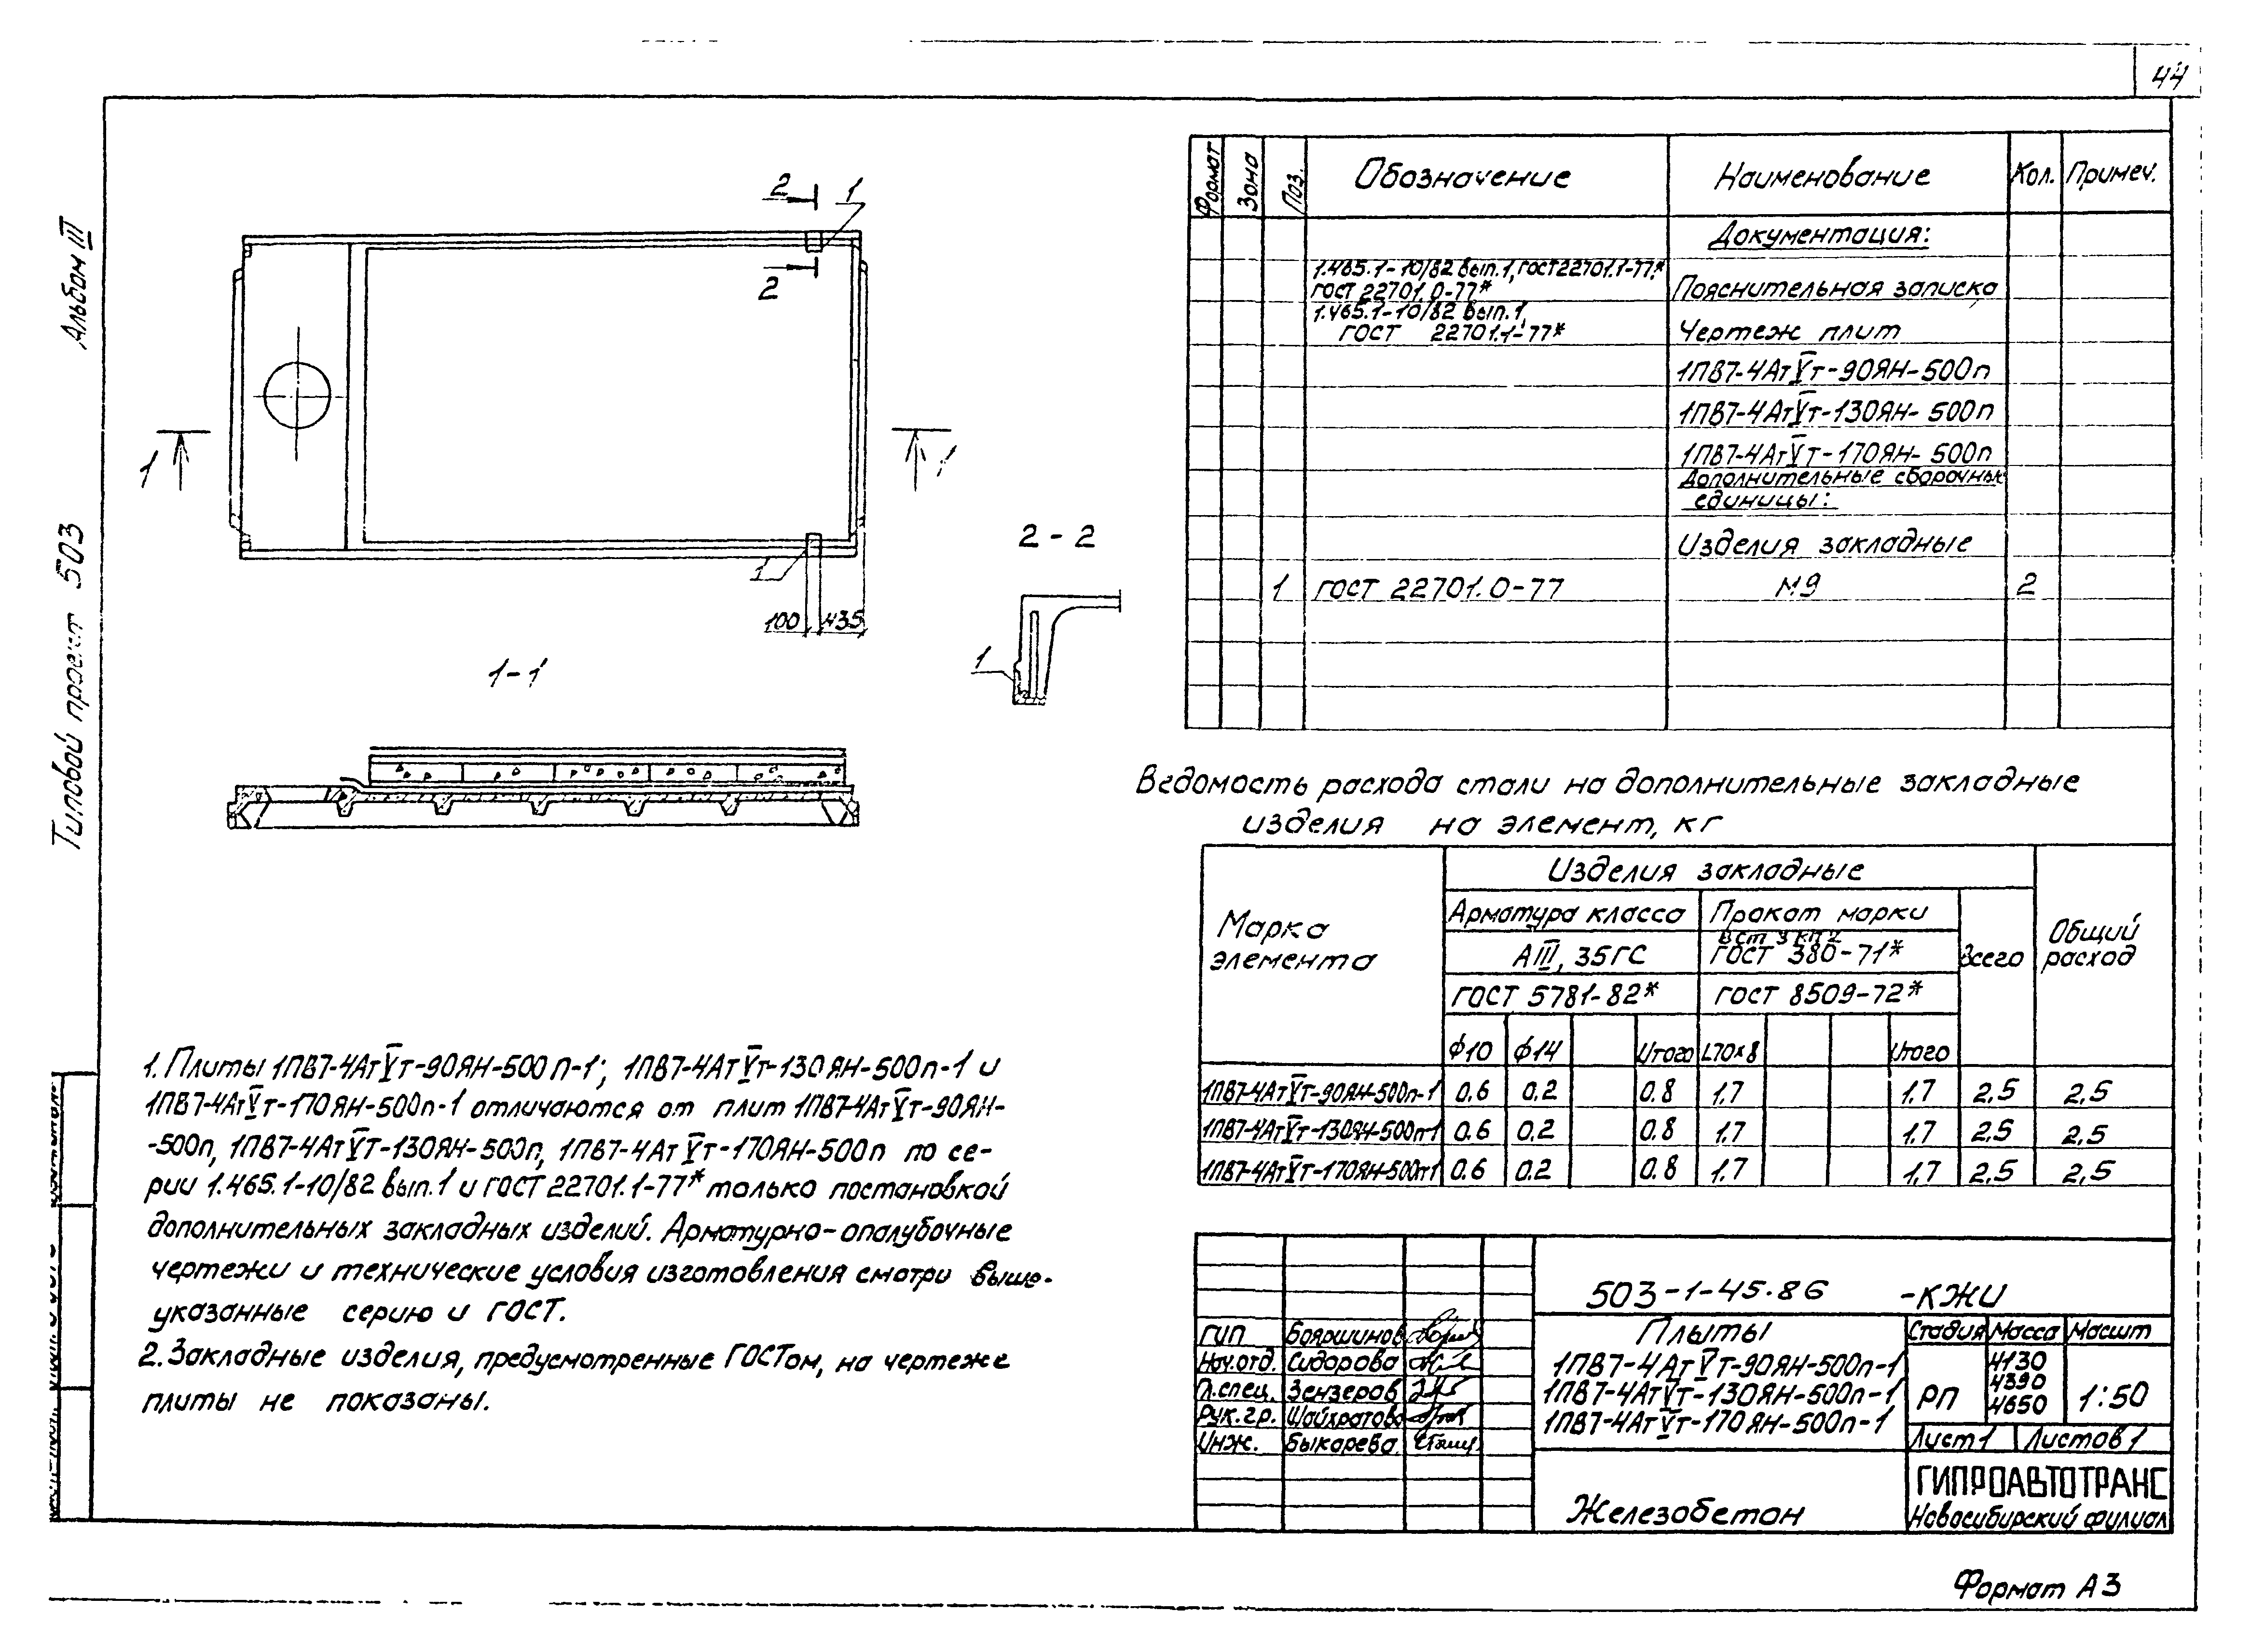 44
Альбом III
Типовой проект 503
2
1
2
1
1
1
100
435
2-2
1
1-1
Формат
Зона
Поз.
Обозначение
Наименование
Кол.
Примеч.
Документация:
1.465.1-10/82 вып.1, ГОСТ 22701.1-77*
ГОСТ 22701.0-77*
Пояснительная записка
1.465.1-10/82 вып.1,
ГОСТ 22701.1-77*
Чертеж плит
1ПВ7-4АтVт-90ЯН-500п
1ПВ7-4АтVт-130ЯН-500п
1ПВ7-4АтVт-170ЯН-500п
Дополнительные сборочные
единицы:
Изделия закладные
1 ГОСТ 22701.0-77 М9 2
Ведомость расхода стали на дополнительные закладные
изделия на элемент, кг
Марка
элемента
Изделия закладные
Общий
расход
Арматура класса
Прокат марки
Всего
АIII, 35ГС
Вст 3 кп 2
ГОСТ 380-71*
ГОСТ 5781-82*
ГОСТ 8509-72*
ф10 ф14 Итого L70×8 Итого
1ПВ7-4АтVт-90ЯН-500п-1 0.6 0.2 0.8 1.7 1.7 2,5 2,5
1ПВ7-4АтVт-130ЯН-500п-1 0.6 0.2 0.8 1.7 1.7 2.5 2,5
1ПВ7-4АтVт-170ЯН-500п-1 0.6 0.2 0.8 1.7 1,7 2,5 2,5
1. Плиты 1ПВ7-4АтVт-90ЯН-500п-1; 1ПВ7-4АтVт-130ЯН-500п-1 и
1ПВ7-4АтVт-170ЯН-500п-1 отличаются от плит 1ПВ7-4АтVт-90ЯН-
-500п, 1ПВ7-4АтVт-130ЯН-500п, 1ПВ7-4АтVт-170ЯН-500п по се-
рии 1.465.1-10/82 вып.1 и ГОСТ 22701.1-77* только постановкой
дополнительных закладных изделий. Арматурно-опалубочные
чертежи и технические условия изготовления смотри выше-
указанные серию и ГОСТ.
2. Закладные изделия, предусмотренные ГОСТом, на чертеже
плиты не показаны.
503-1-45.86 -КЖИ
ГИП Бояршинов
Нач.отд. Сидорова
Гл.спец. Зензеров
Рук.гр. Шайхратова
Инж. Быкарева
Плыты
1ПВ7-4АтVт-90ЯН-500п-1
1ПВ7-4АтVт-130ЯН-500п-1
1ПВ7-4АтVт-170ЯН-500п-1
Стадия Масса Масшт
РП
4130
4390
4650
1:50
Лист 1 Листов 1
Железобетон
ГИПРОАВТОТРАНС
Новосибирский филиал
Формат А3